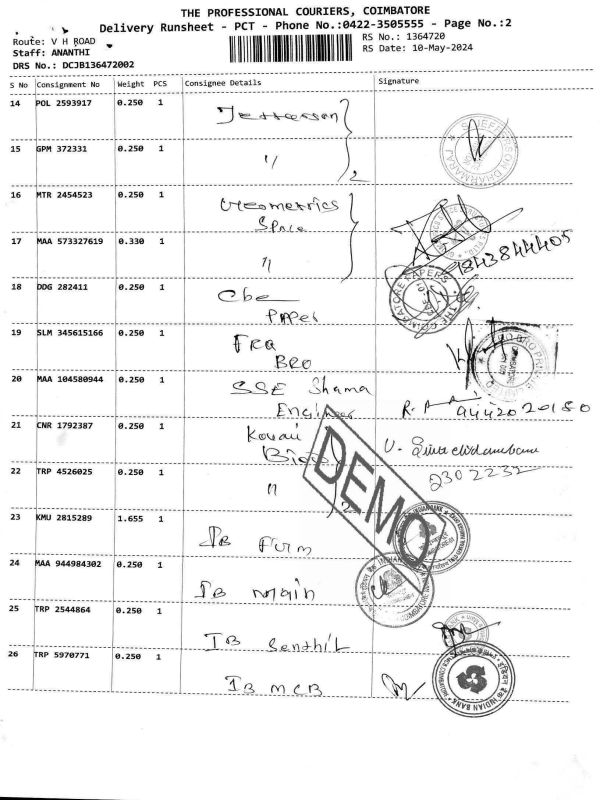 THE PROFESSIONAL COURIERS, COIMBATORE
Delivery Runsheet - PCT - Phone No.:0422-3505555 - Page No.:2
Route: V H ROAD
RS No.: 1364720
Staff: ANANTHI
RS Date: 10-May-2024
DRS No.: DCJB136472002
S No Consignment No Weight PCS Consignee Details Signature
14 POL 2593917 0.250 1
15 GPM 372331 0.250 1
〃
2
16 MTR 2454523 0.250 1 Geometrics
Space
17 MAA 573327619 0.330 1 〃
9843844405
18 DDG 282411 0.250 1 Cbe
Paper
THE COIMBATORE PAPERS
19 SLM 345615166 0.250 1
BRO
20 MAA 104580944 0.250 1 SSE Shama
Engineer
21 CNR 1792387 0.250 1 Kovai
2302232
22 TRP 4526025 0.250 1 〃
2
DEMO
23 KMU 2815289 1.655 1 IB Furm
24 MAA 944984302 0.250 1 IB main
25 TRP 2544864 0.250 1 IB Senthil
26 TRP 5970771 0.250 1 IB MCB
INDIAN BANK